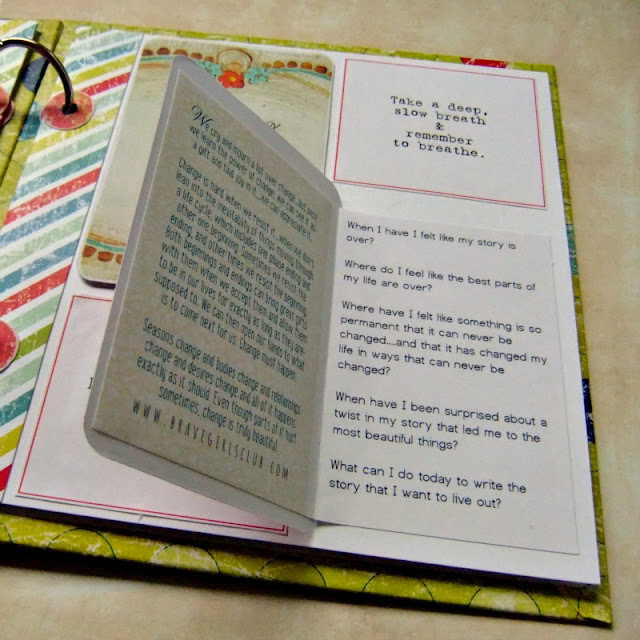 We cry and mourn a lot over change, but
we learn the power of change and can see it as
a gift and find joy in it, can we appreciate it.
Change is hard when we resist it... when we don't
lean into the inevitability of things moving through
a life cycle, which includes one phase ending and
one beginning. Sometimes we resist the
ending, and other times we resist the beginning.
Both beginnings and endings can bring great gifts
with them when we except them and allow them
to be in our lives for exactly as long as they are
supposed to. We can then open our hands to what
is to come next for us. Change must happen.
Seasons change and bodies change and relationships
change and desires change and all of it happens
exactly as it should. Even though parts of it hurt
sometimes, change is truly beautiful.
WWW.BRAVEGIRLSCLUB.COM
Take a deep,
slow breath
&
remember
to breathe.
When I have I felt like my story is
over?
Where do I feel like the best parts of
my life are over?
Where have I felt like something is so
permanent that it can never be
changed....and that it has changed my
life in ways that can never be
changed?
When have I been surprised about a
twist in my story that led me to the
most beautiful things?
What can I do today to write the
story that I want to live out?